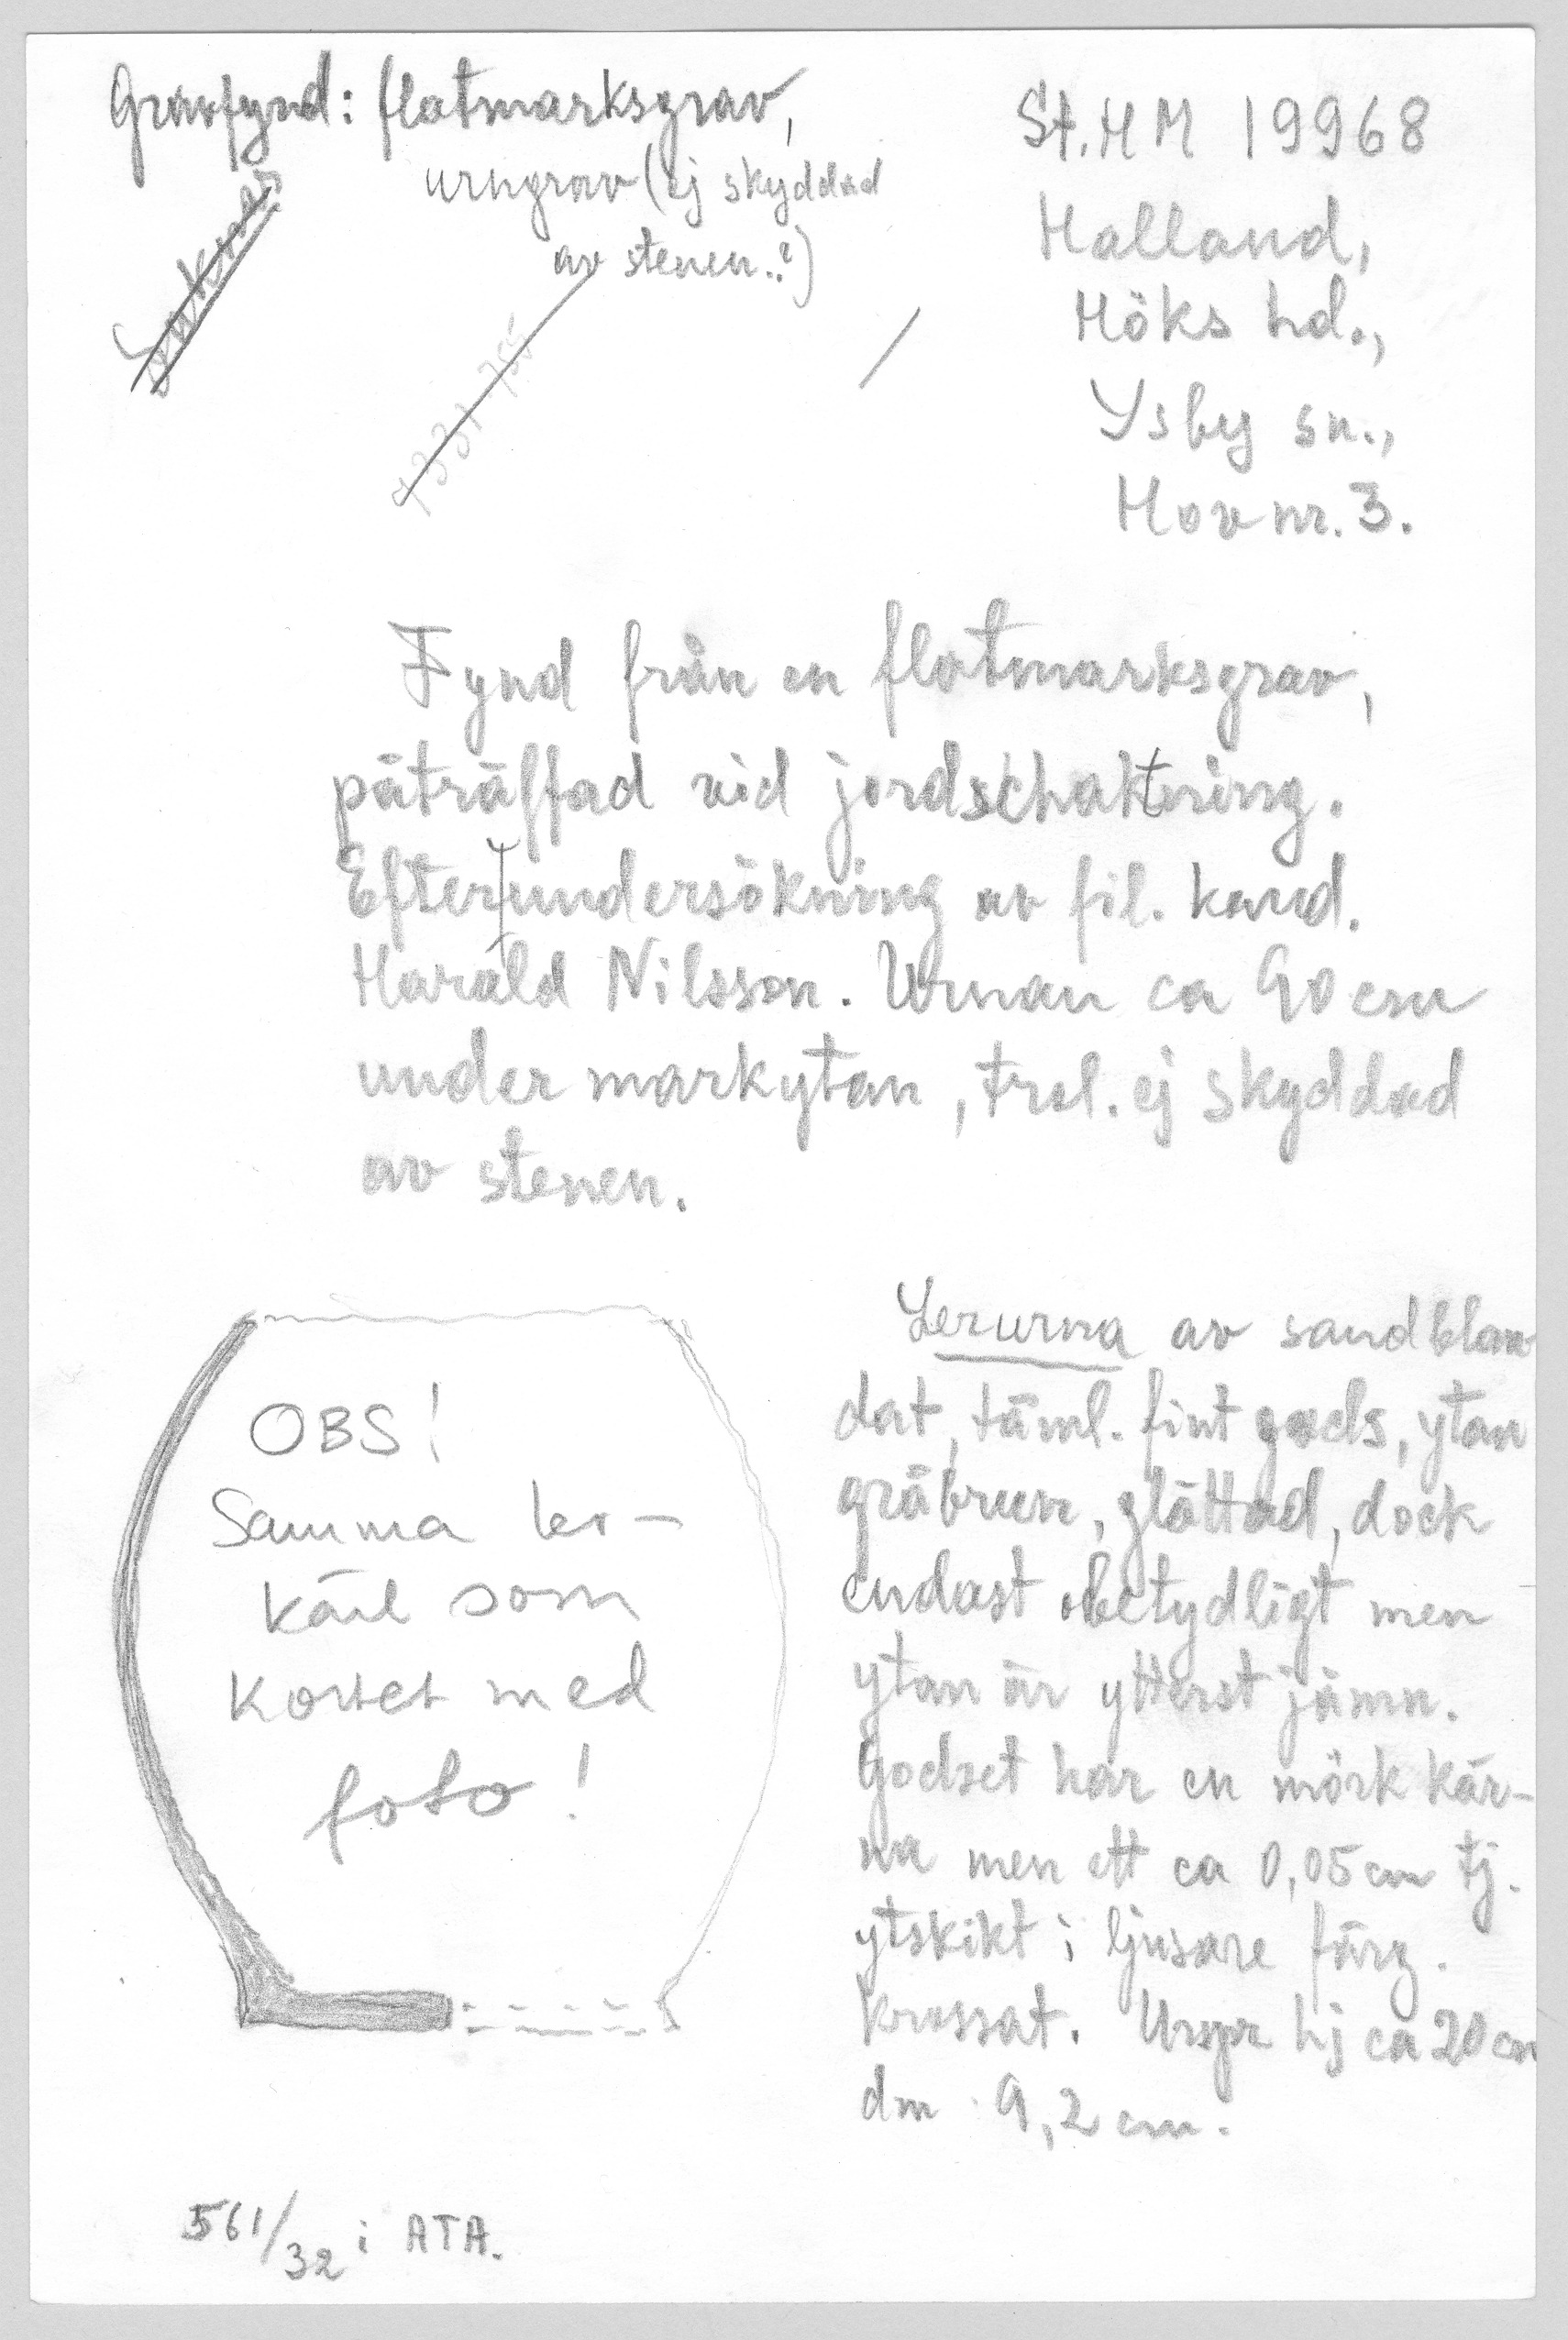 Gravfynd: flatmarksgrav,
urngrav (ej skyddad
av stenen..?)
St. H M 19968
Halland,
Höks hd.,
Ysby sn.,
Hov nr. 3.
Fynd från en flatmarksgrav,
påträffad vid jordschaktning.
Efterundersökning av fil. kand.
Harald Nilsson. Urnan ca 90 cm
under markytan, trol. ej skyddad
av stenen.
OBS!
Samma ler-
käril som
kortet med
foto!
Lerurna av sandblan
dat, täml. fint gods, ytan
gråbrun, glättad, dock
endast obetydligt men
ytan är ytterst jämn.
Godset har en mörk kär-
na men ett ca 0,05 cm tj.
ytskikt i ljusare färg.
Krossat. Urspr hj ca 20 cm
dm 9,2 cm.
561/32 i ATA.